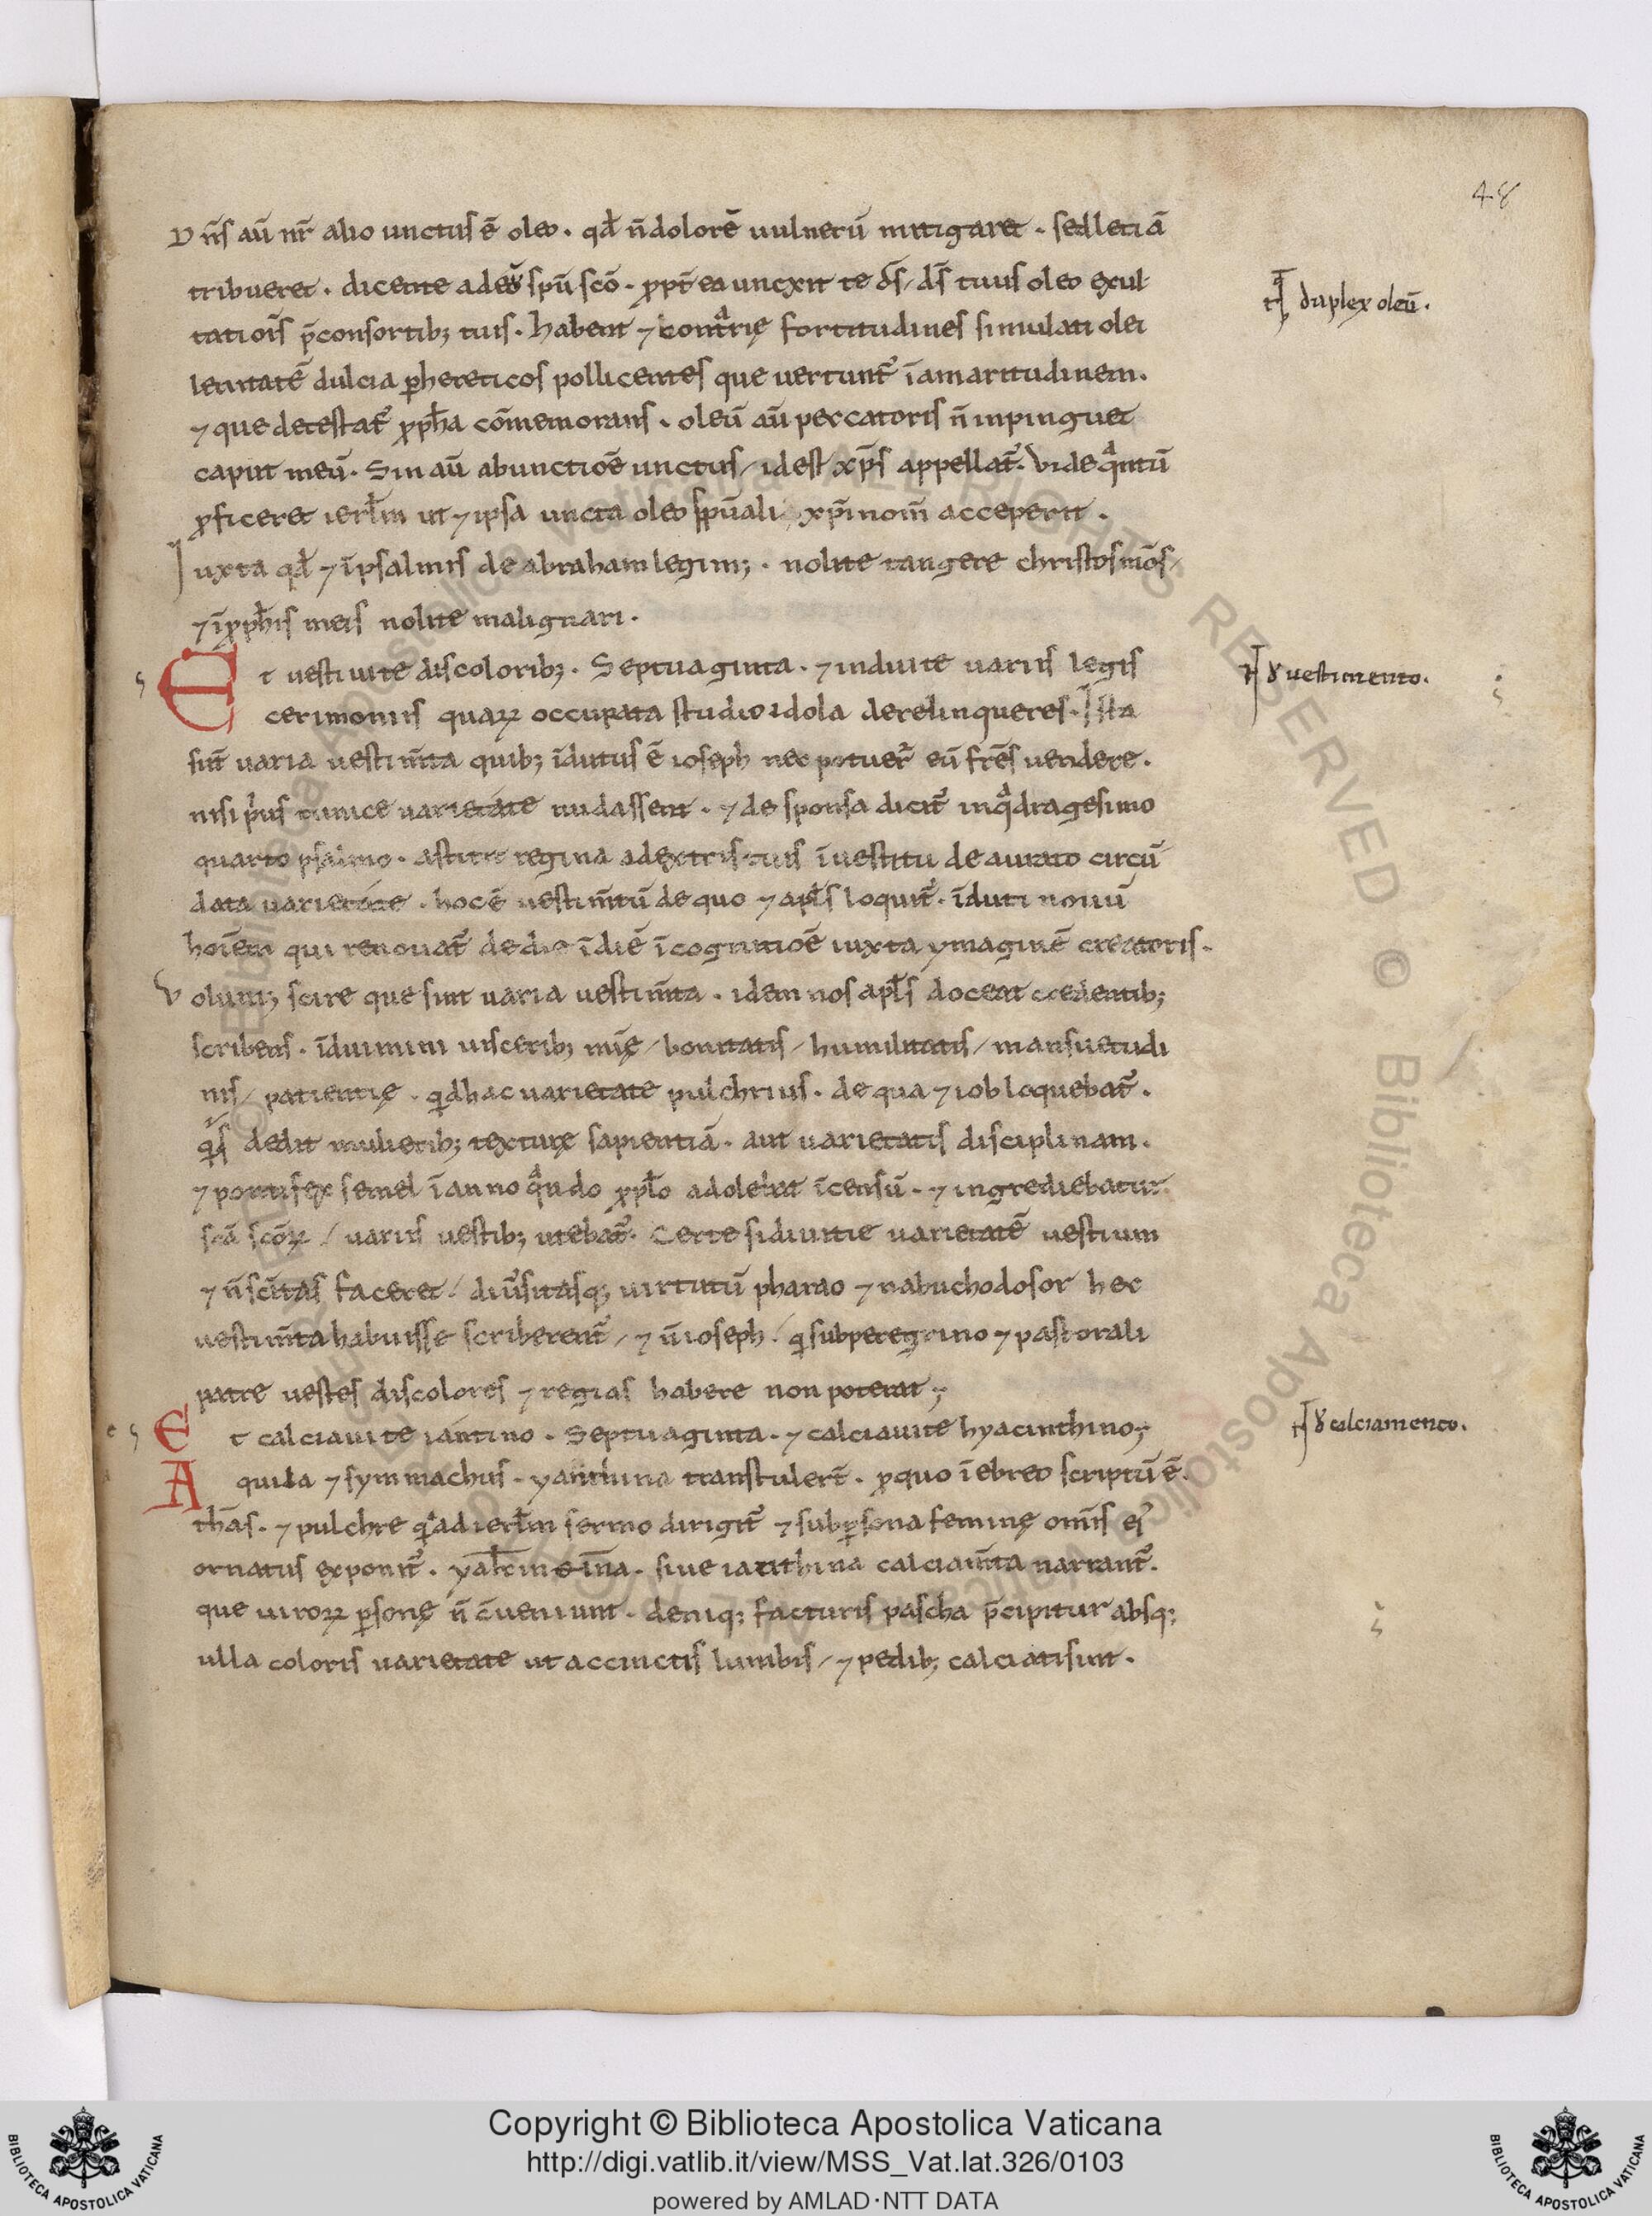 48
Dn̄s aū nr̄ alio unctus ē oleo. qd̄ n̄ dolorē uulnerū mitigaret. sed letitiā
tribueret. dicente ad eū spū scō. ꝓpt̄ ea unxit te ds̄ / ds̄ tuus oleo exul
tatiōis p̄consortib; tuis. habent ⁊ contrarię fortitudines simulati olei
lenitatē dulcia ꝑhereticos pollicentes que uertunt᷑ ī amaritudinem.
⁊ que detestat᷑ ꝓph̄a cōmemorans. oleū aū peccatoris n̄ inpinguet
caput meū. Sin aū ab unctiōe unctus / id est xp̄s appellat᷑. Vide qͣntū
ꝓficeret ierl̄m ut ⁊ ipsa uncta oleo spūali xp̄i nom̄ acceperit.
Iuxta qd̄ ⁊ ī psalmis de abraham legim;. nolite tangere christos mōs /
⁊ ī ꝓph̄is meis nolite malignari.
Et uestiuite discolorib;. Septuaginta. ⁊ induite uariis legis
cerimoniis quaꝝ occupata studio idola derelinqueres. Ista
sūt uaria uestim̄ta quib; īdutus ē ioseph nec potuer̄ eū frēs uendere.
nisi pͥus tunice uarietate nudassent. ⁊ de sponsa dicit᷑ in qͣdragesimo
quarto psalmo. astitit regina a dextris tuis ī uestitu deaurato circū
data uarietate. hoc ē uestim̄tū de quo ⁊ apl̄s loquit᷑. īduti nouū
hoīem qui renouat᷑ de die ī diē ī cognitiōe iuxta ymaginē creatoris.
Volum; scire que sunt uaria uestim̄ta. idem nos apl̄s doceat credentib;
scribens. īduimini uiscerib; mīę / bonitatis / humilitatis / mansuetudi
nis / patientię. qͥd hac uarietate pulchrius. de qua ⁊ iob loquebat᷑.
qͥs dedit mulierib; texturę sapientiā. aut uarietatis disciplinam.
⁊ pontifex semel ī anno qͣndo ꝓ ppl̄o adolebat īcensū. ⁊ ingrediebatur
scā scōꝝ / uariis uestib; utebat᷑. Certe si diuitie uarietatē uestium
⁊ n̄ scītas faceret / diūsitasq; uirtutū pharao ⁊ nabuchodosor hec
uestim̄ta habuisse scriberent᷑ / ⁊ n̄ ioseph / qͥ sub peregrino ⁊ pastorali
patre uestes discolores ⁊ regias habere non poterat;
Et calciauite iantino. Septuaginta. ⁊ calciauite hyacinthino;
Aquila ⁊ symmachus. yanthina transtuler̄t. ꝓ quo ī ebreo scriptū ē.
thās. ⁊ pulchre qͥ ad ierl̄m sermo dirigit᷑ ⁊ sub ꝑsona feminę omīs ei᷒
ornatus exponit᷑. sive iacithina calciam̄ta narrant᷑.
que uiroꝝ ꝑsonę n̄ c̄ueniunt. deniq; facturis pascha p̄cipitur absq;
ulla coloris uarietate ut accinctis lumbis / ⁊ pedib; calciati sint.
duplex oleū.
uestimento.
calciamento.
© Biblioteca Apostolica Vaticana ALL RIGHTS RESERVED © Biblioteca Apostolica Vaticana
Copyright © Biblioteca Apostolica Vaticana
http://digi.vatlib.it/view/MSS_Vat.lat.326/0103
powered by AMLAD·NTT DATA
BIBLIOTECA APOSTOLICA VATICANA
BIBLIOTECA APOSTOLICA VATICANA